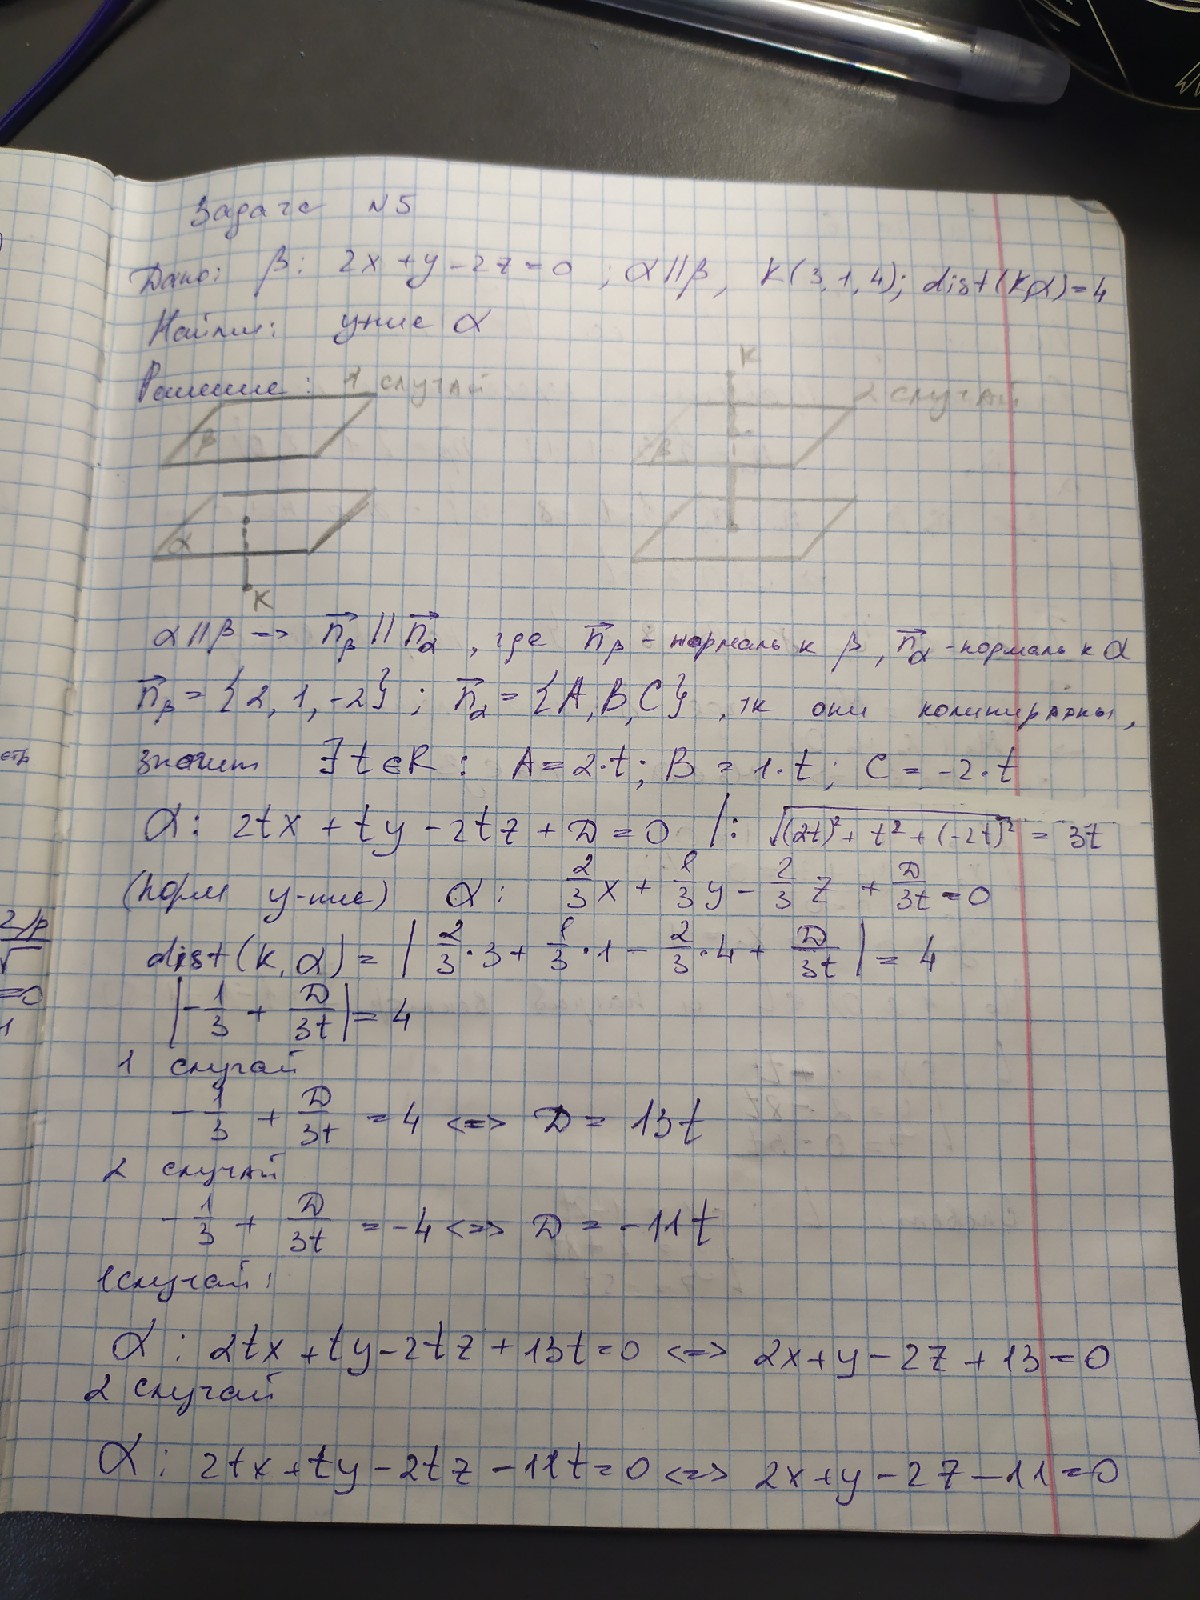 Задача №5
Дано: β: 2x+y-2z=0; α||β, K(3,1,4); dist(K,α)=4
Найти: у-ние α
Решение: 1 случай
K
2 случай
β
β
α
K
α||β → n⃗β || n⃗α, где n⃗β - нормаль к β, n⃗α - нормаль к α
n⃗β = {2, 1, -2}; n⃗α = {A, B, C}, тк они колинирадны,
значит ∃ t∈R: A=2·t; B=1·t; C=-2·t
α: 2tx + ty - 2tz + D = 0 |: √((2t)²+t²+(-2t)²) = 3t
(норм у-ние) α: 2/3 x + 1/3 y - 2/3 z + D/3t = 0
dist(K, α) = |2/3·3 + 1/3·1 - 2/3·4 + D/3t| = 4
|-1/3 + D/3t| = 4
1 случай
-1/3 + D/3t = 4 <=> D = 13t
2 случай
-1/3 + D/3t = -4 <=> D = -11t
1 случай:
α: 2tx+ty-2tz+13t=0 <=> 2x+y-2z+13=0
2 случай
α: 2tx+ty-2tz-11t=0 <=> 2x+y-2z-11=0
стр
=0